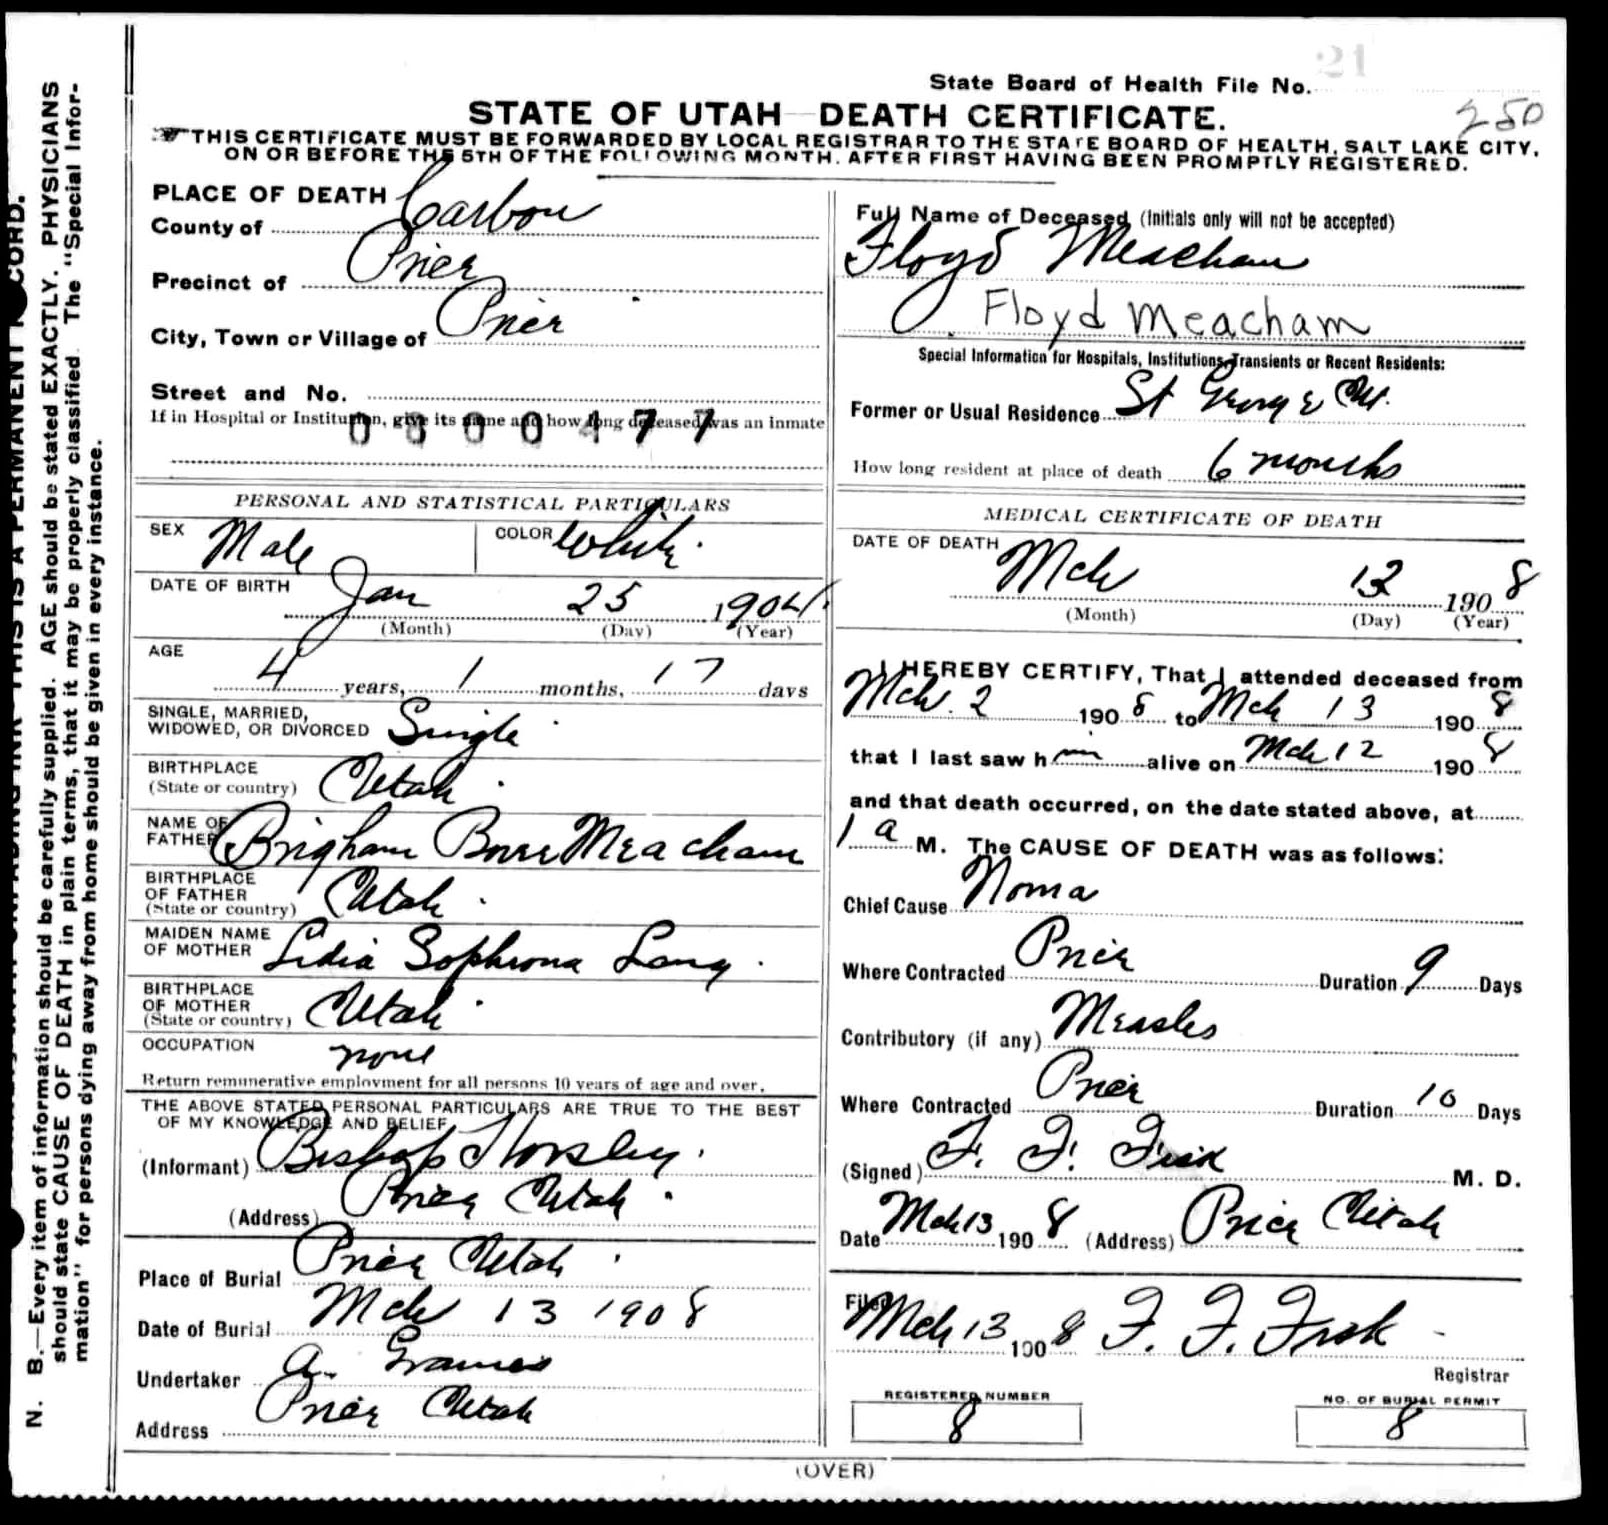 21
State Board of Health File No.
250
STATE OF UTAH—DEATH CERTIFICATE.
THIS CERTIFICATE MUST BE FORWARDED BY LOCAL REGISTRAR TO THE STATE BOARD OF HEALTH, SALT LAKE CITY,
ON OR BEFORE THE 5TH OF THE FOLLOWING MONTH, AFTER FIRST HAVING BEEN PROMPTLY REGISTERED.
N. B.—Every item of information should be carefully supplied. AGE should be stated EXACTLY. PHYSICIANS
should state CAUSE OF DEATH in plain terms, that it may be properly classified. The "Special Infor-
mation" for persons dying away from home should be given in every instance.
THIS IS A PERMANENT
PLACE OF DEATH
County of Carbon
Precinct of Price
City, Town or Village of Price
Street and No.
If in Hospital or Institution, give its name and how long deceased was an inmate
0800477
PERSONAL AND STATISTICAL PARTICULARS
SEX Male COLOR White
DATE OF BIRTH Jan 25 1904
(Month) (Day) (Year)
AGE
4 years, 1 months, 17 days
SINGLE, MARRIED,
WIDOWED, OR DIVORCED Single
BIRTHPLACE
(State or country) Utah
NAME OF
FATHER Brigham Meacham
BIRTHPLACE
OF FATHER
(State or country) Utah
MAIDEN NAME
OF MOTHER Lidia Sophrona Lang
BIRTHPLACE
OF MOTHER
(State or country) Utah
OCCUPATION none
Return remunerative employment for all persons 10 years of age and over.
THE ABOVE STATED PERSONAL PARTICULARS ARE TRUE TO THE BEST
OF MY KNOWLEDGE AND BELIEF
(Informant) Bishop Horsley
(Address) Price Utah
Place of Burial Price Utah
Date of Burial Mch 13 1908
Undertaker A. Grames
Address Price Utah
Full Name of Deceased (Initials only will not be accepted)
Floyd Meacham
Floyd Meacham
Special Information for Hospitals, Institutions, Transients or Recent Residents:
Former or Usual Residence St George Ut.
How long resident at place of death 6 months
MEDICAL CERTIFICATE OF DEATH
DATE OF DEATH Mch 13 1908
(Month) (Day) (Year)
I HEREBY CERTIFY, That I attended deceased from
Mch. 2 1908 to Mch 13 1908
that I last saw him alive on Mch 12 1908
and that death occurred, on the date stated above, at
1 a M. The CAUSE OF DEATH was as follows:
Chief Cause Noma
Where Contracted Price Duration 9 Days
Contributory (if any) Measles
Where Contracted Price Duration 10 Days
(Signed) F. F. Fisk M. D.
Date Mch 13 1908 (Address) Price Utah
Filed Mch 13 1908 F. F. Fisk
Registrar
REGISTERED NUMBER
8
NO. OF BURIAL PERMIT
8
(OVER)